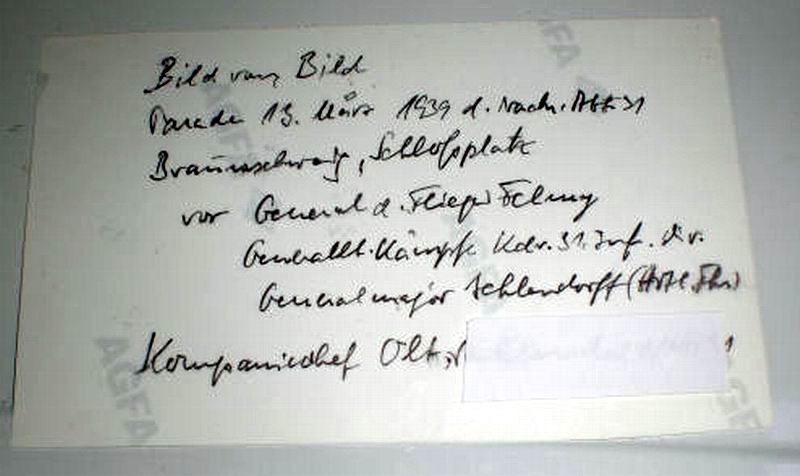 Bild vom Bild
Parade 13. März 1939 d. Nachr. Abt 31
Braunschweig, Schloßplatz
vor General d. Flieger Felmy
Generallt. Kämpfe Kdr. 31. Inf. Div.
Generalmajor
Kompaniechef
AGFA
AGFA
AGFA
AGFA